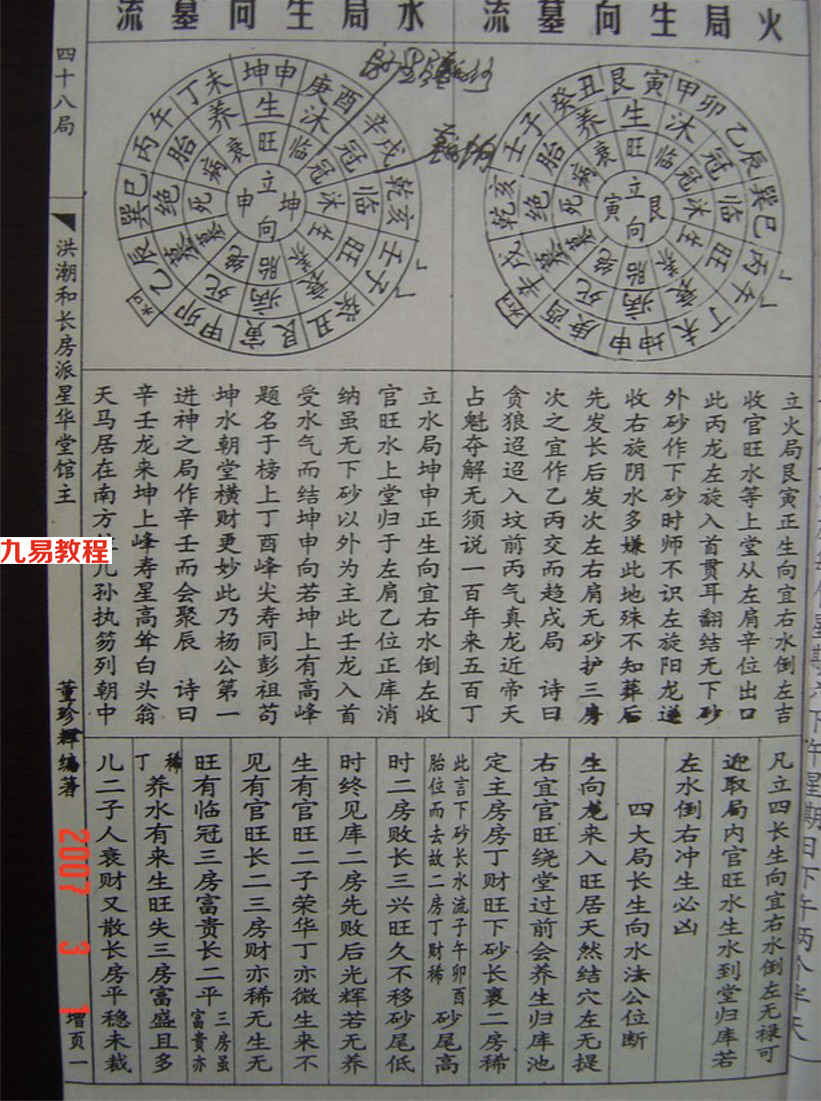 火局生向墓流
水局生向墓流
四十八局
洪潮和长房派星华堂馆主
董珍辉编著
增页一
立火局艮寅正生向宜右水倒左吉
收官旺水等上堂从左肩辛位出口
此丙龙左旋入首贯耳翻结无下砂
外砂作下砂时师不识左旋阳龙递
收右旋阴水多嫌此地殊不知葬后
先发长后发次左右肩无砂护三房
次之宜作乙丙交而趋戌局 诗曰
贪狼迢迢入坟前丙气真龙近帝天
占魁夺解无须说一百年来五百丁
立水局坤申正生向宜右水倒左收
官旺水上堂归于左肩乙位正库消
纳虽无下砂以外为主此壬龙入首
受水气而结坤申向若坤上有高峰
题名于榜上丁酉峰尖寿同彭祖苟
坤水朝堂横财更妙此乃杨公第一
进神之局作辛壬而会聚辰 诗曰
辛壬龙来坤上峰寿星高耸白头翁
天马居在南方 儿孙执笏列朝中
凡立四长生向宜右水倒左无禄可
迎取局内官旺水生水到堂归库若
左水倒右冲生必凶
四大局长生向水法公位断
生向龙来入旺居天然结穴左无提
右宜官旺绕堂过前会养生归库池
定主房房丁财旺下砂长裹二房稀
此言下砂长水流子午卯酉
胎位而去故二房丁财稀
砂尾高
时二房败长三兴旺久不移砂尾低
时终见库二房先败后光辉若无养
生有官旺二子荣华丁亦微生来不
见有官旺长二三房财亦稀无生无
旺有临冠三房富贵长二平
三房虽
富贵亦
稀
丁
养水有来生旺失三房富盛且多
儿二子人衰财又散长房平稳未裁
立向
艮
寅
旺
临
冠
沐
生
养
胎
绝
墓
死
病
衰
艮寅
甲卯
乙辰
巽巳
丙午
丁未
坤申
庚酉
辛戌
乾亥
壬子
癸丑
立向
坤
申
旺
临
冠
沐
生
养
胎
绝
墓
死
病
衰
坤申
庚酉
辛戌
乾亥
壬子
癸丑
艮寅
甲卯
乙辰
巽巳
丙午
丁未
九易教程
2007 3 1